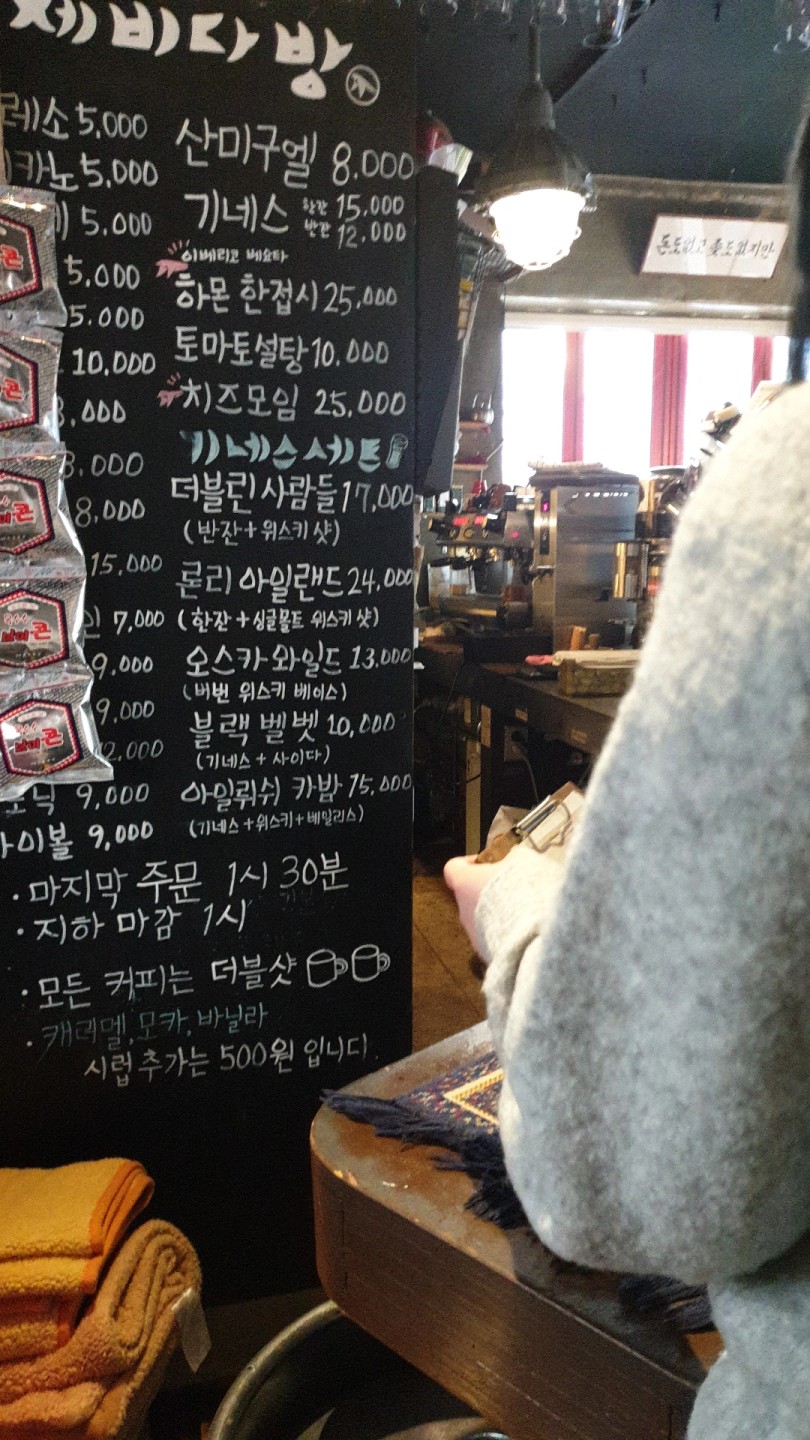 제비다방
레소 5.000
카노 5,000
5.000
5.000
5.000
10,000
8,000
8,000
15.000
7,000
9,000
9,000
닉 9,000
이볼 9,000
산미구엘 8.000
기네스 한잔 15,000
반잔 12,000
이베리코 베요타
하몬 한접시 25,000
토마토설탕 10.000
치즈모임 25,000
기네스세트
더블린사람들 17,000
(반잔+위스키 샷)
론리 아일랜드 24,000
(한잔+싱글몰트 위스키 샷)
오스카 와일드 13.000
(버번 위스키 베이스)
블랙 벨벳 10,000
(기네스+사이다)
아일뤼쉬 카밤 15,000
(기네스+위스키+베일리스)
· 마지막 주문 1시 30분
· 지하 마감 1시
· 모든 커피는 더블샷
· 캐러멜, 모카, 바닐라
시럽 추가는 500원 입니다.
콘
콘
콘
콘
콘
돈도없고 좆도없지만